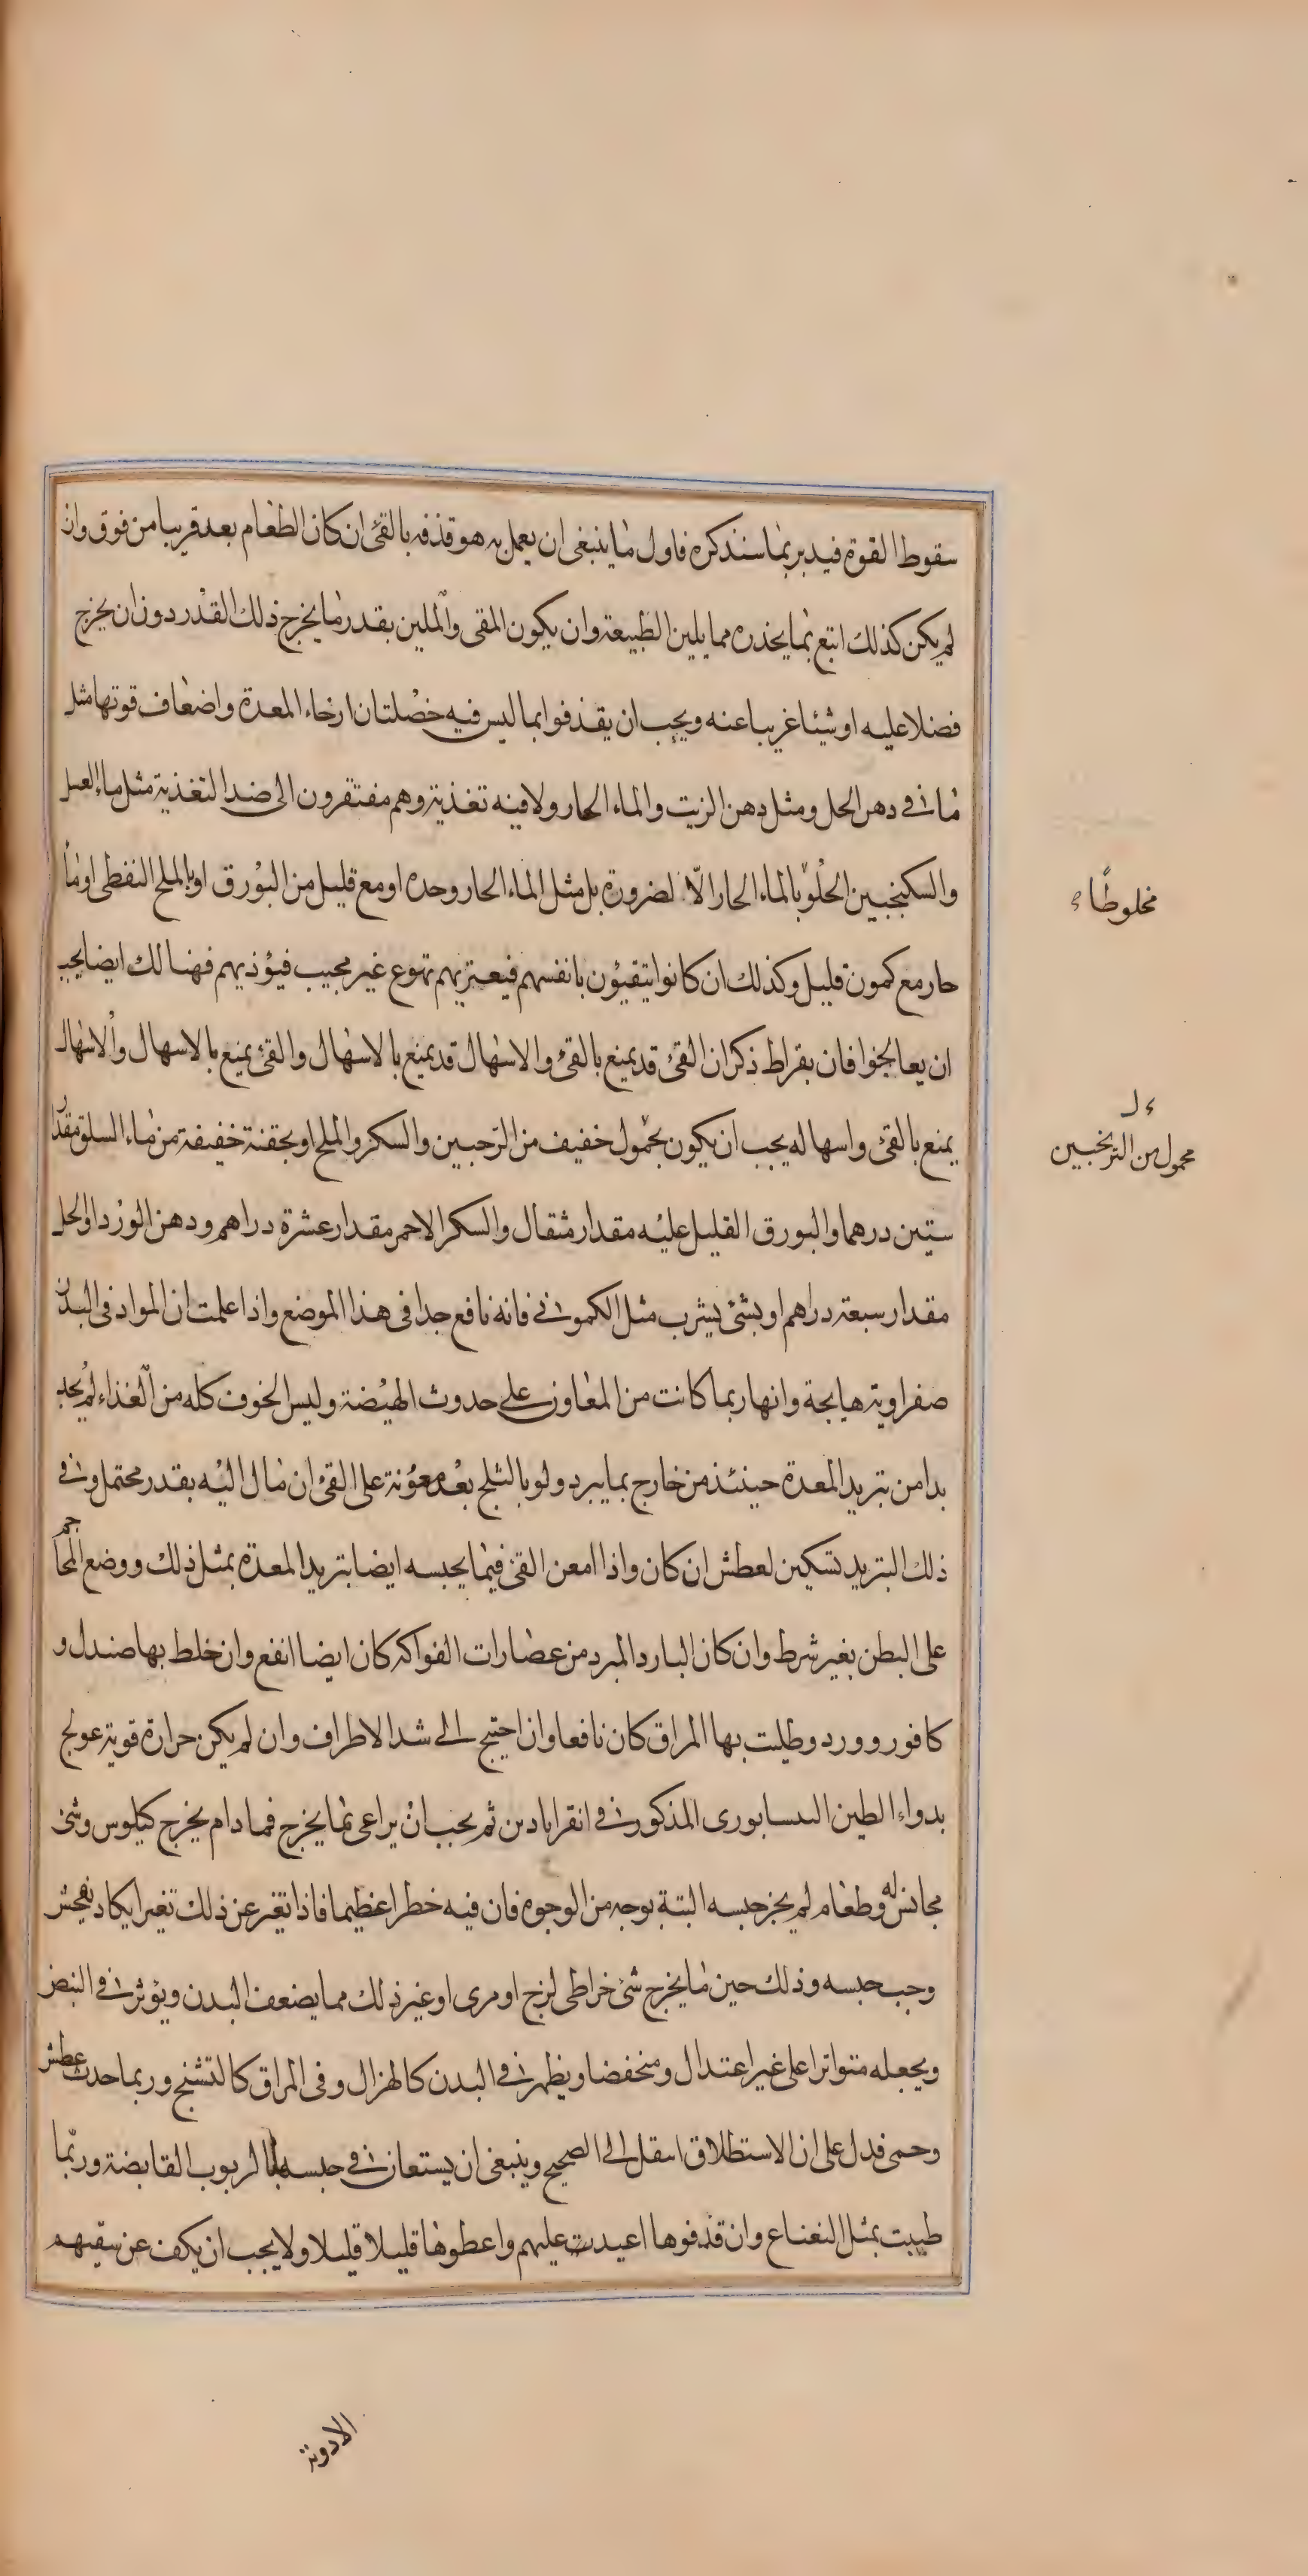 سقوط القوة فيدبر بما سنذكره فاول ما ينبغى ان يعمل به هو قذفه بالقئ ان كان الطعام بعد قريبا من فوق وان
لم يكن كذلك اتبع بما يحذره مما يلين الطبيعة وان يكون المقى والملين بقدر ما يخرج ذلك القدر دون ان يخرج
فضلا عليه او شيئا غريبا عنه ويجب ان يقذفوا بما ليس فيه خصلتان ارخاء المعدة واضعاف قوتها مثل
ما فى دهن الحل ومثل دهن الزيت والماء الحار ولا فيه تغذية وهم مفتقرون الى ضد التغذية مثل ماء العسل
والسكنجبين الحلو بالماء الحار الا لضرورة بل مثل الماء الحار وحده او مع قليل من البورق او بالملح النفطى او ماء
حار مع كمون قليل وكذلك ان كانوا يتقيؤن بانفسهم فيعتريهم تهوع غير مجيب فيؤذيهم فهنالك ايضا يجب
ان يعالجوا فان بقراط ذكر ان القئ قد يمنع بالقئ والاسهال قد يمنع بالاسهال والقئ يمنع بالاسهال والاسهال
يمنع بالقئ واسهاله يجب ان يكون بحمول خفيف من الرحبين والسكر والملح او بحقنة خفيفة من ماء السلق مقدار
ستين درهما والبورق القليل عليه مقدار مثقال والسكر الاحمر مقدار عشرة دراهم ودهن الورد او الحل
مقدار سبعة دراهم او بشئ يشرب مثل الكمونى فانه نافع جدا فى هذا الموضع واذا علمت ان المواد فى البدن
صفراوية هايجة وانها ربما كانت من المعاون على حدوث الهيضة وليس الخوف كله من الغذاء لم يجد
بدا من تبريد المعدة حينئذ من خارج بما يبرد ولو بالثلج بعد معونة على القئ ان مال اليه بقدر محتمل وفى
ذلك التبريد تسكين لعطش ان كان واذا امعن القئ فيما يحبسه ايضا بتريد المعدة بمثل ذلك ووضع المحاجم
على البطن بغير شرط وان كان البارد المبرد من عصارات الفواكه كان ايضا انفع وان خلط بها صندل و
كافور وورد وطليت بها المراق كان نافعا وان احتيج الى شد الاطراف وان لم يكن حرارة قوية عولج
بدواء الطين النىسابورى المذكور فى انقراىادىن ثم يجب ان يراعى ما يخرج فما دام يخرج كيلوس وشئ
مجانس له وطعام لم يجز حبسه البتة بوجه من الوجوه فان فيه خطرا عظيما فاذا تغير عن ذلك تغيرا يكاد يفحش
وجب حبسه وذلك حين ما يخرج شئ خراطى لزج او مرى او غير ذلك مما يضعف البدن ويؤثر فى النبض
ويجعله متواترا على غير اعتدال ومنخفضا ويظهر فى البدن كالهزال وفى المراق كالتشنج وربما حدث عطش
وحمى فدل على ان الاستطلاق انتقل الى الصحيح وينبغى ان يستعان فى حبسه بالربوب القابضة وربما
طيبت بمثل النعناع وان قذفوها اعيدت عليهم واعطوها قليلا قليلا ولا يجب ان يكف عن سقيهم
مخلوطا
حمول من الترنجبين
الادوية